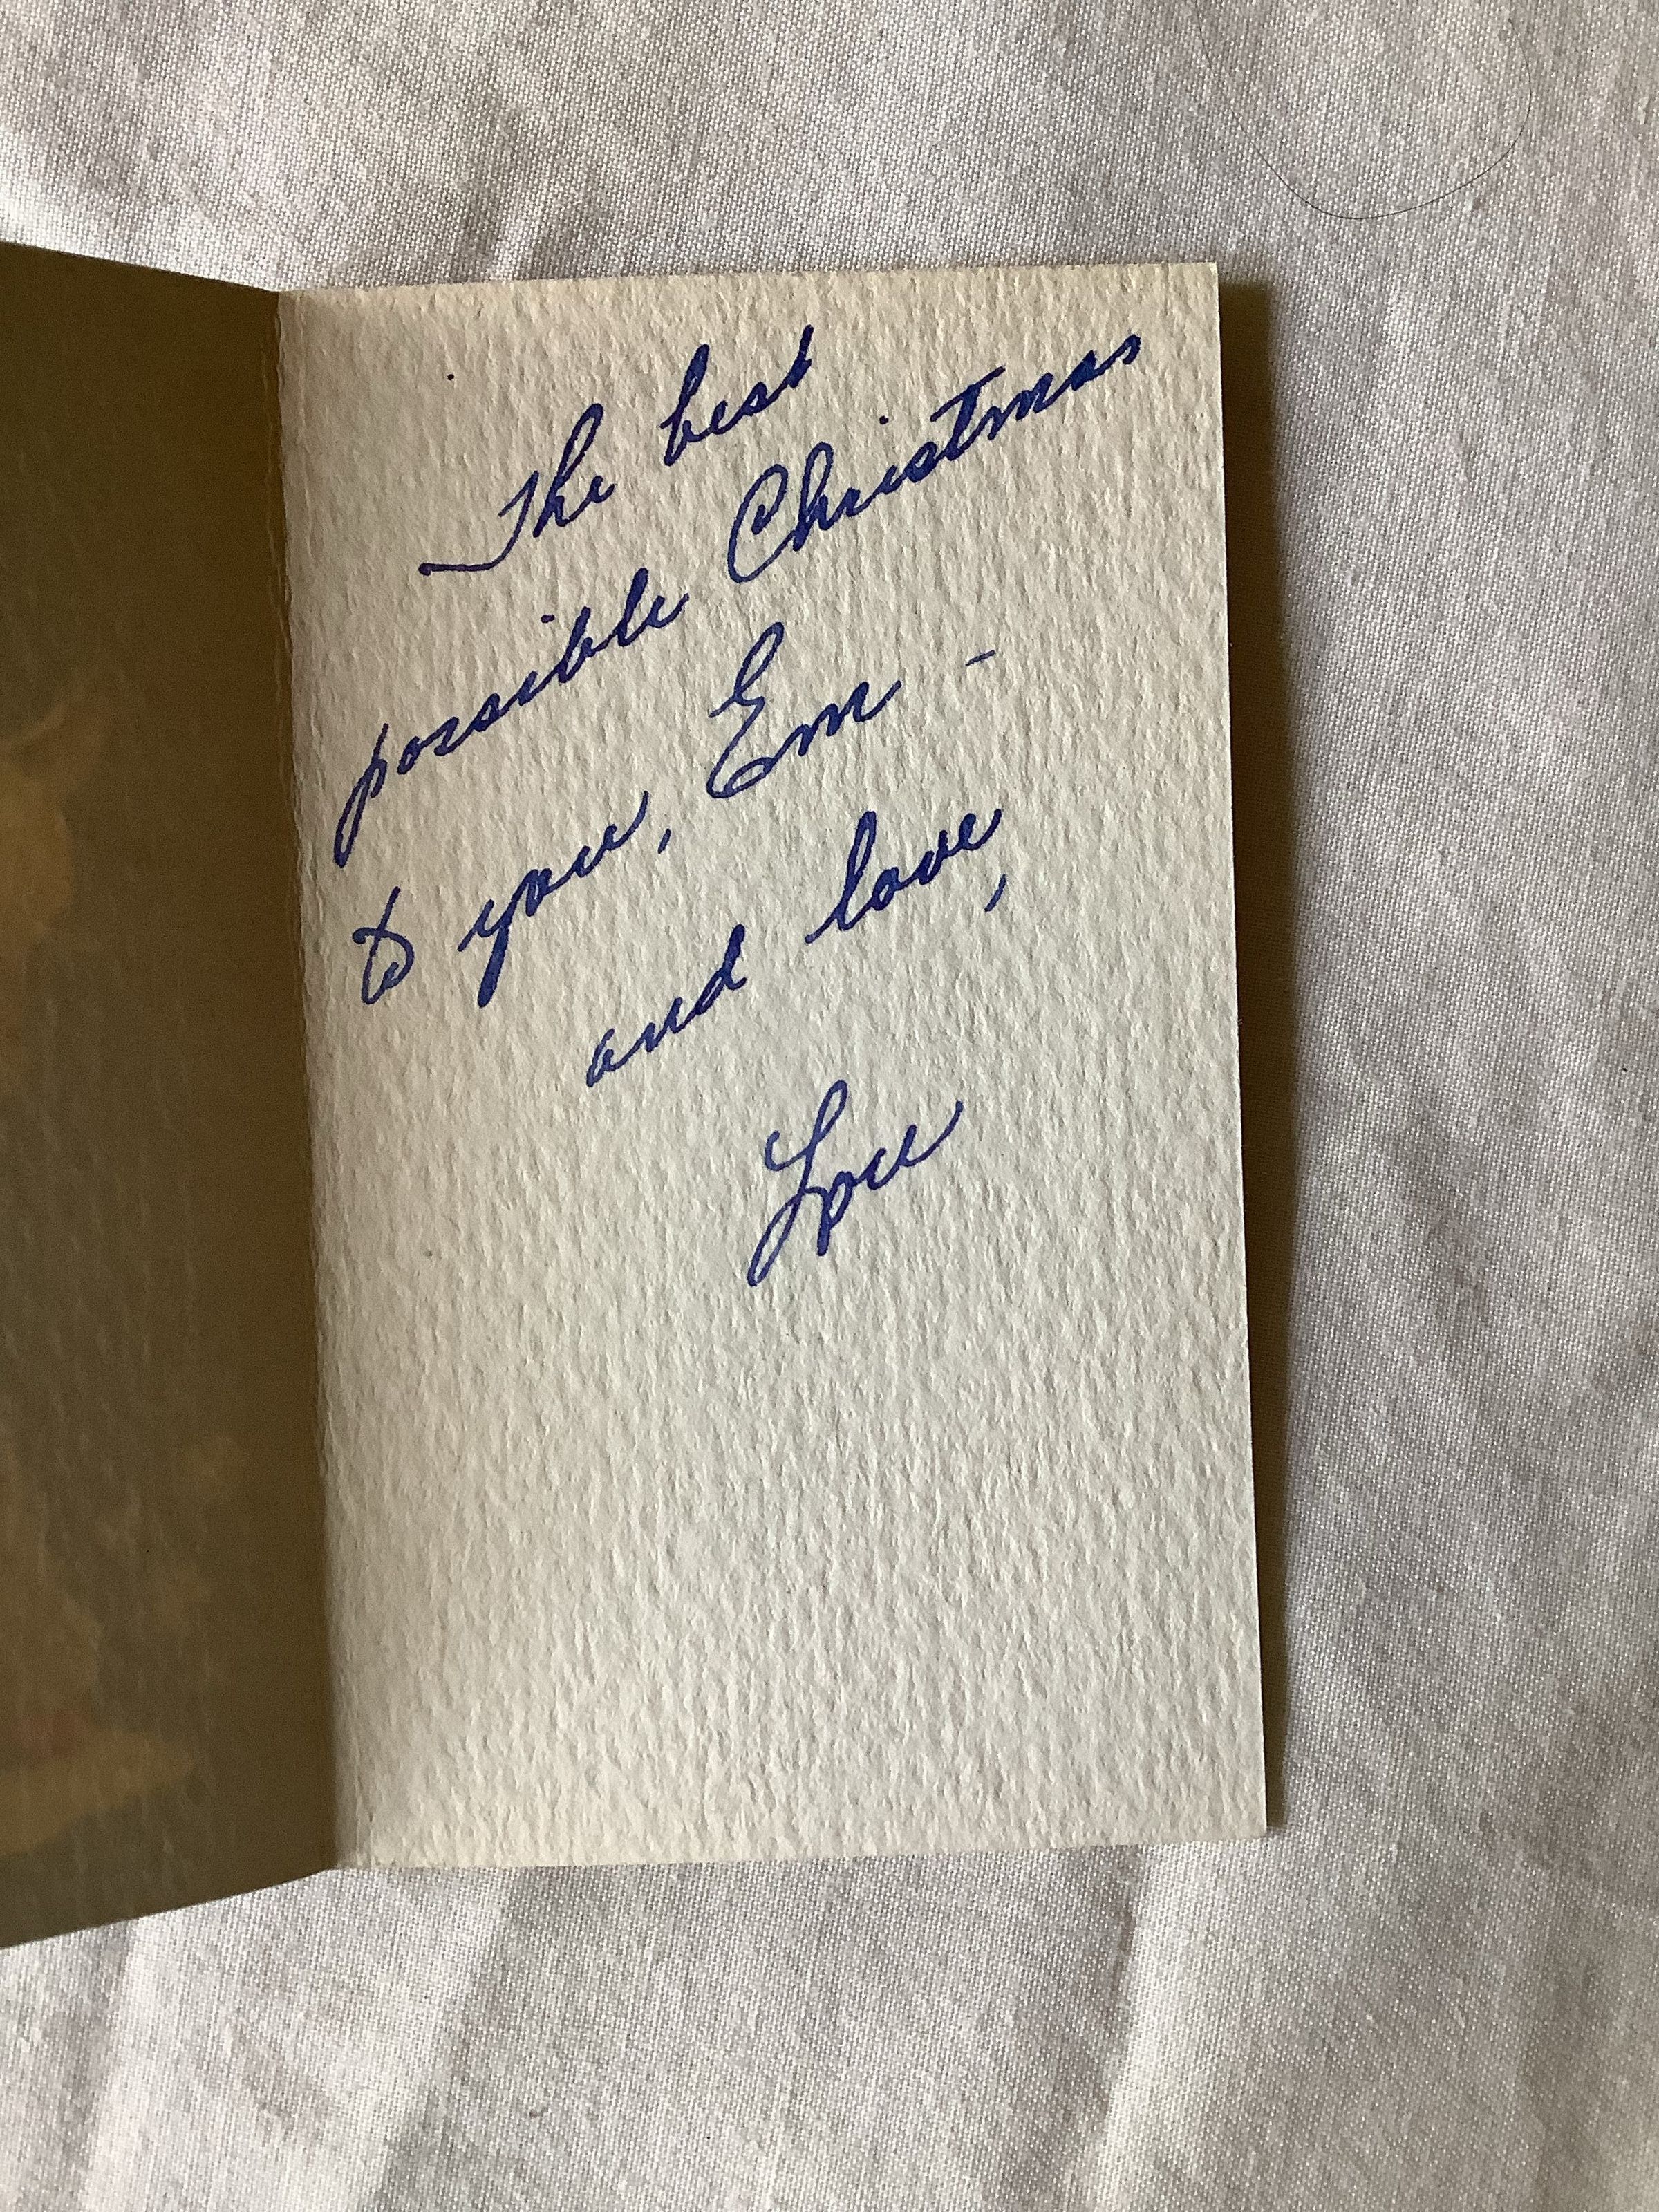 The best
possible Christmas
to you, Em –
and love,
Lou